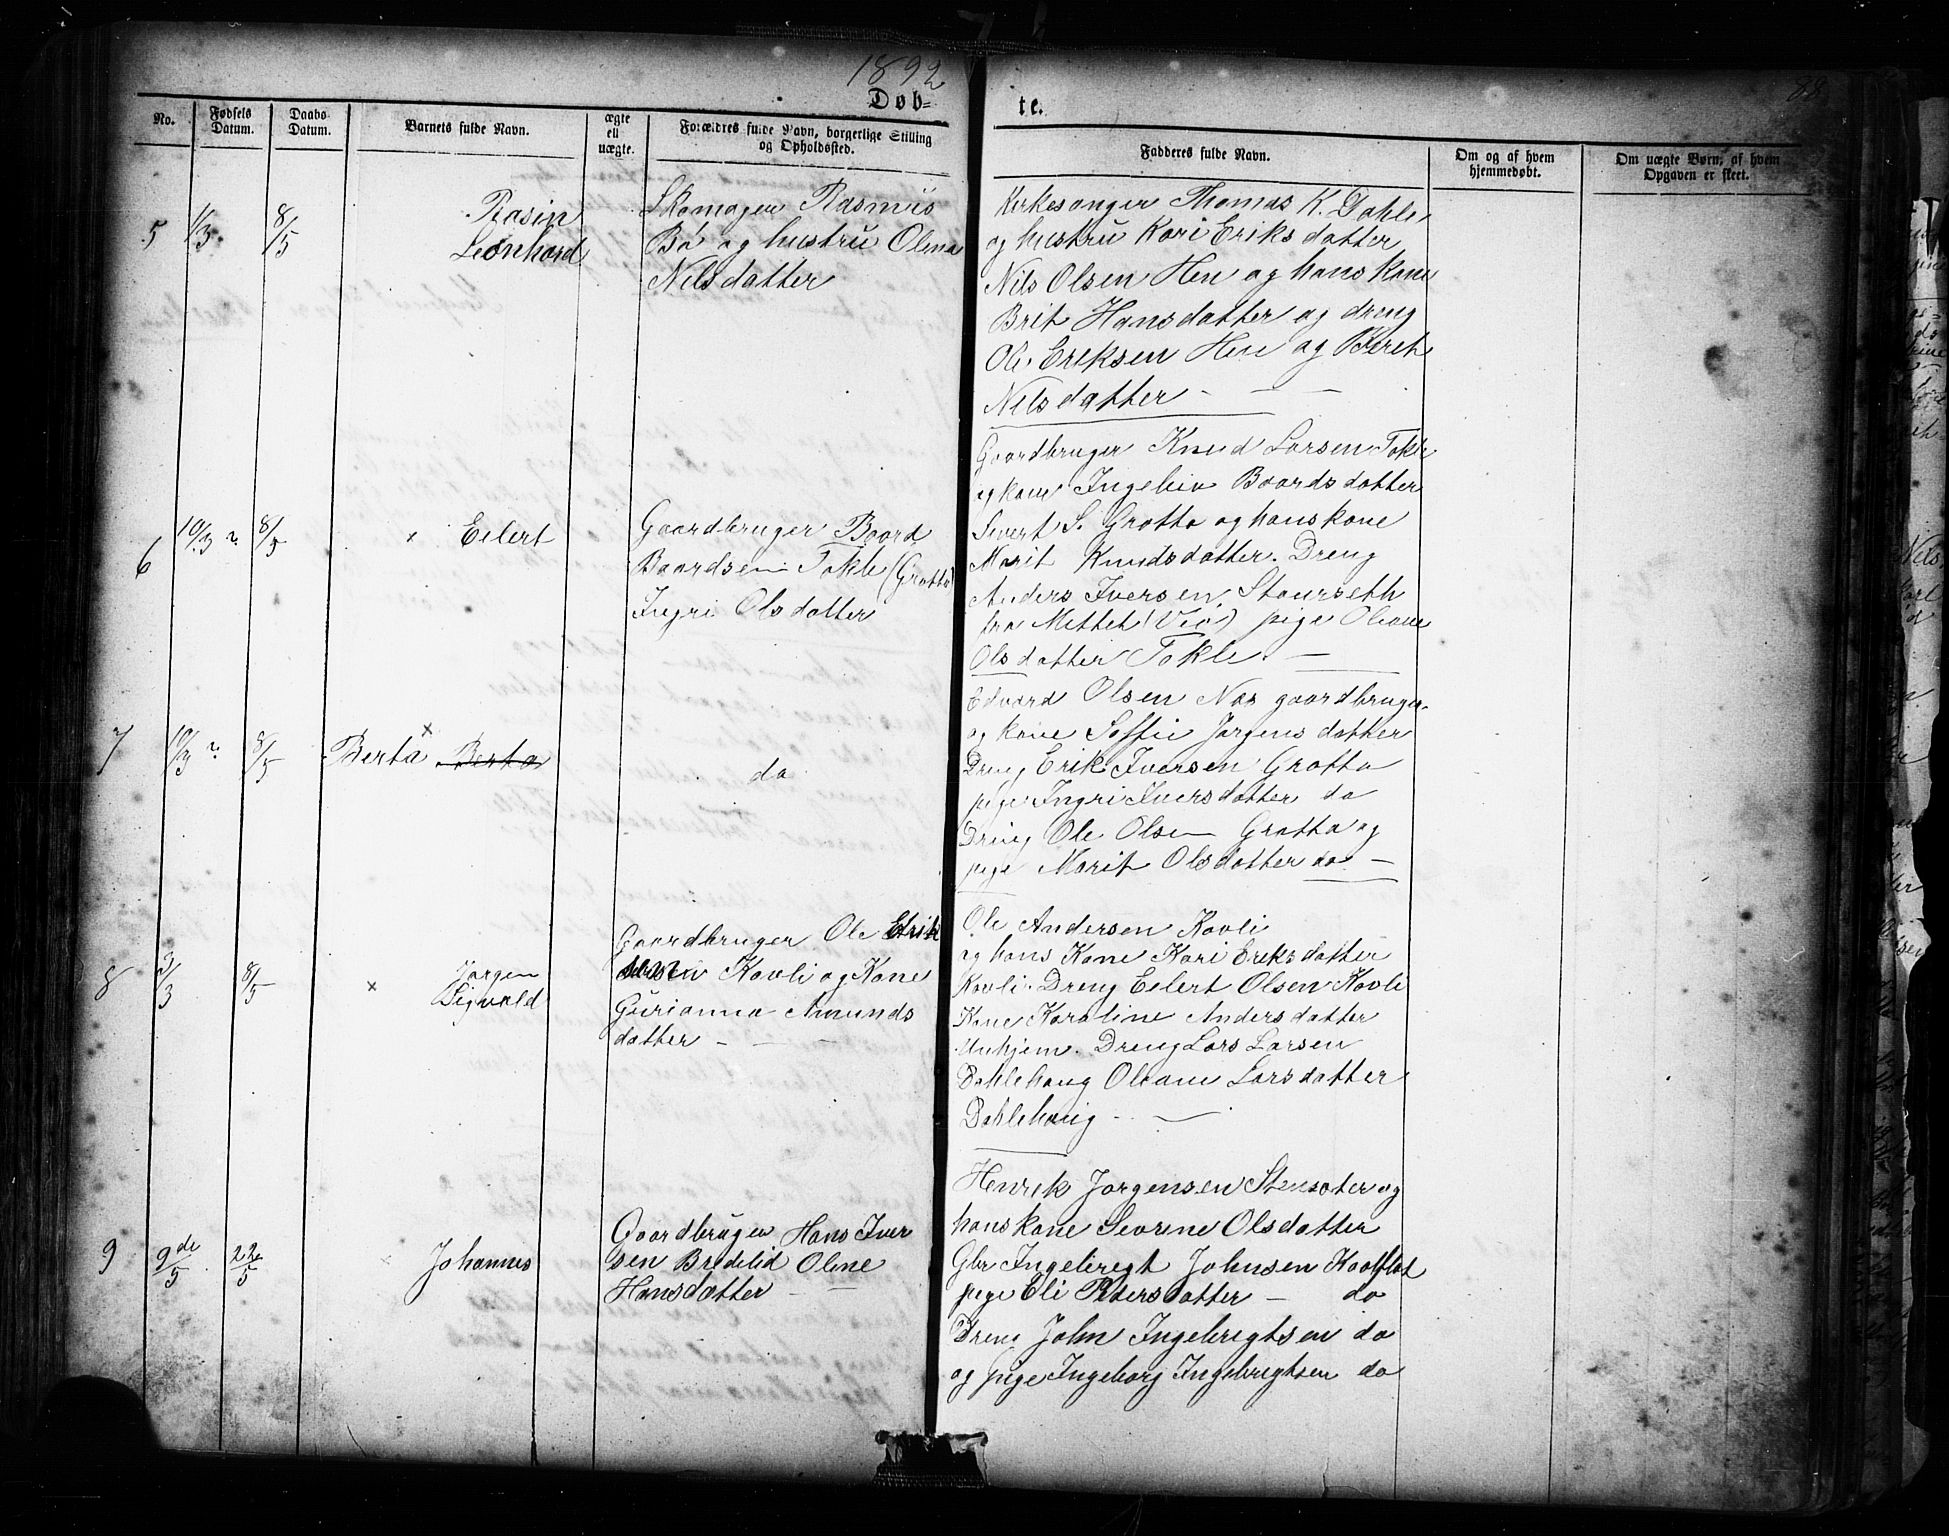 1892
88
Døb=
te.
No.
Fødsels Datum.
Daabs Datum.
Barnets fulde Navn.
ægte ell uægte.
Forældres fulde Navn, borgerlige Stilling og Opholdssted.
Fadderes fulde Navn.
Om og af hvem hjemmedøbt.
Om uægte Børn, af hvem Opgaven er skeet.
5
1/3.
8/5
Rasin
Leonhard
Skomager Rasmus
Bø og hustru Olina
Nilsdatter
Kirkesanger Thomas K. Dahle,
og hustru Kari Eriksdatter
Nils Olsen Hen og hans kone
Brit Hansdatter og dreng
Ole Eriksen Hen og Berit
Nilsdatter -
6
10/3 ?
8/5
× Eilert
Gaardbruger Baard
Baardsen Tokle (Grotta)
Ingri Olsdatter
Gaardbruger Knud Larsen Tokle
og kone Ingeliv Baardsdatter
Sivert S. Grotta og hans kone
Marit Knudsdatter. Dreng
Anders Iversen Staurseth
fra Mittet (Veø) pige Oliane
Olsdatter Tokle. —
7
10/3 ?
8/5
Berta × Berta
do
Edvard Olsen Næs gaardbruger
og kone Soffie Jørgensdatter
Dreng Erik Iversen Grotta
pige Ingri Iversdatter do
Dreng Ole Olsen Grotta og
pige Marit Olsdatter do —
8
3/3
8/5
× Jørgen
Sigvald
Gaardbruger Ole Erik
sen Kavli og Kone
Gurianna Amunds
datter -
Ole Andersen Kavli
og hans Kone Kari Eriksdatter
Kavli. Dreng Eilert Olsen Kavli
Kone Karoline Andersdatter
Unhjem. Dreng Lars Larsen
Dahlehaug Oliane Larsdatter
Dahlehaug -
9
9de/5.
22/5
Johannes
Gaardbruger Hans Iver
sen Bredelid Oline
Hansdatter -
Henrik Jørgensen Stensæter og
hans kone Sevrine Olsdatter
Gbr Ingebregt Johnsen Kaalflot
pige Eli Pedersdatter — do
Dreng John Ingebrigtsen do
og pige Ingeborg Ingebrigtsen do